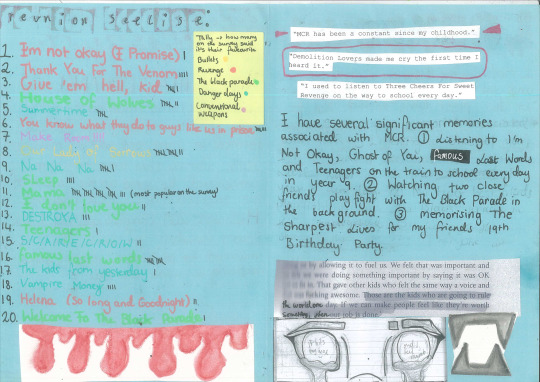 reunion setlist:
1. I'm not okay (I Promise)
2. Thank You For The Venom
3. Give 'em hell, kid
4. House of Wolves
5. Summertime
6. You know what they do to guys like us in prison
7. Make Room!!!!
8. Our Lady of Sorrows
9. Na Na Na
10. Sleep
11. Mama (most popular on the survey)
12. I don't love you
13. DESTROYA
14. Teenagers
15. S/C/A/R/E/C/R/O/W
16. Famous last words
17. The kids from yesterday
18. Vampire Money
19. Helena (So long and Goodnight)
20. Welcome To The Black Parade
Tally is how many
on the survey said
it's their favourite
Bullets
Revenge
The black parade
Danger days
Conventional
weapons
"MCR has been a constant since my childhood."
"Demolition Lovers made me cry the first time I
heard it."
"I used to listen to Three Cheers For Sweet
Revenge on the way to school every day."
I have several significant memories
associated with MCR. ① listening to I'm
Not Okay, Ghost of You, famous Last Words
and Teenagers on the train to school every day
in year 9. ② Watching two close
friends play fight with The Black Parade in
the background. ③ memorising The
Sharpest Lives for my friends 19th
Birthday Party.
by allowing it to fuel us. We felt that was important and
were doing something important by saying it was OK
That gave other kids who felt the same way a voice and
fucking awesome. Those are the kids who are going to rule
the world one day. If we can make people feel like they're worth
something, then our job is done.